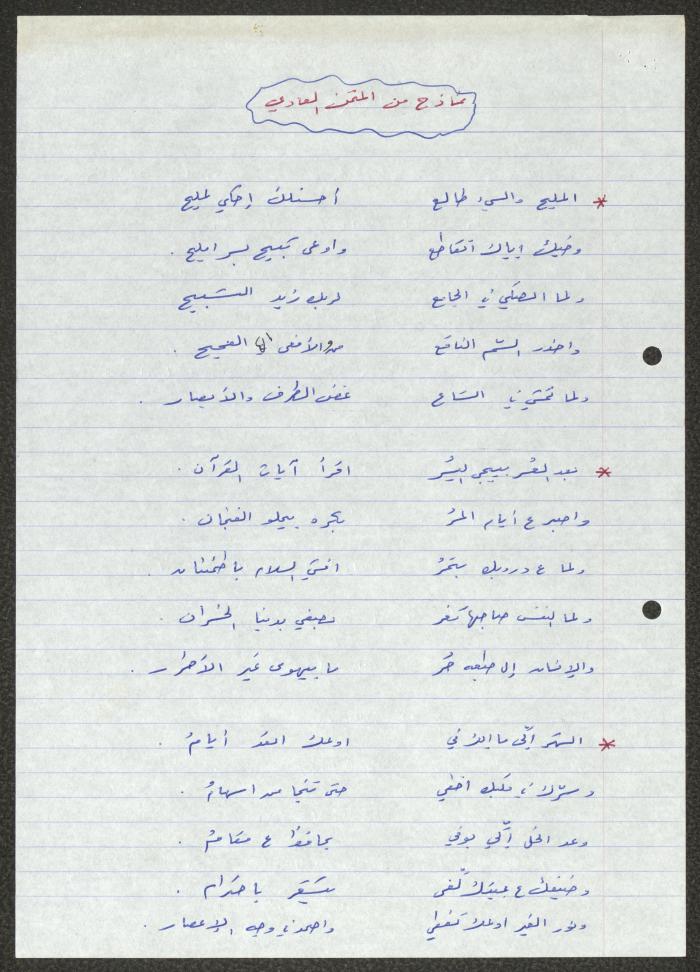 نماذج من المتمن العادي
* المليح والسيء طالع أحسنلك إحكي لمليح
وخيك إياك اتقاطع واوعى تبيح بسر امليح .
ولما الصكي في الجامع لربك زيد التسبيح
واحذر السّم الناقع من الأفعى الفحيح .
ولما تمشي في الشارع غض الطرف والأبصار .
* بعد العُسر بييجي اليُسُر اقرأ آيات القرآن .
واصبر ع أيام المُرُ بكره بيحلو الفنجان .
ولما ع دروبك بتمُرُ افشي السلام باطمئنان .
ولما النفس صاحبها تغر بصفي بدنيا الخسران .
والإنسان إلى طبعه حُر ما بيهوى غير الأحرار .
* السهر إلّي ما الو في اوعك اتعد أيامُ .
وسرّك في قلبك اخفي حتى تنجا من اسهامُ .
وعد الخل إلّي يوفي بحافظ ع مقامُ .
وضيفك ع عيبتك لّفى باحترام .
ونور الغير اوعك تطفي واصمد في وجه الإعصار .